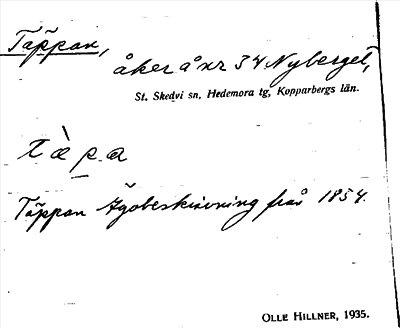 Täppan,
åker å nr 34 Nyberget,
St. Skedvi sn, Hedemora tg, Kopparbergs län.
tàpa
Täppan Ägobeskrivning från 1854.
OLLE HILLNER, 1935.